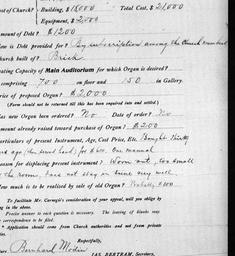 of Church? Building, $18,000 Total Cost, $21,000
Equipment, $2,000
Amount of Debt? $1200
is Debt Provided for? By subscription among the Church
Church built of? Brick
Seating Capacity of Main Auditorium for which Organ is desired?
comprising 700 on floor and 150 in Gallery.
Price of proposed Organ? $2,000
(Form should not be returned till this has been required into and settled)
as New Organ been ordered? No Date of order? No
amount already raised toward purchase of Organ? $200
Particulars of present Instrument, Age, Cost Price, Etc. Bought thirty
One manual
Reason for displacing present instrument? Worn out, too small
for the room, does not stay in tune very well.
How much is to be realised by sale of old Organ? Probably
To facilitate Mr. Carnegie's consideration of your appeal, will you oblige by
in the above.
Precise answer to each question is necessary. The leaving of blanks may
correspondence to be profitless.
Application should come from Church authorities and not from private
Respectfully,
JAS. BERTRAM, Secretary.